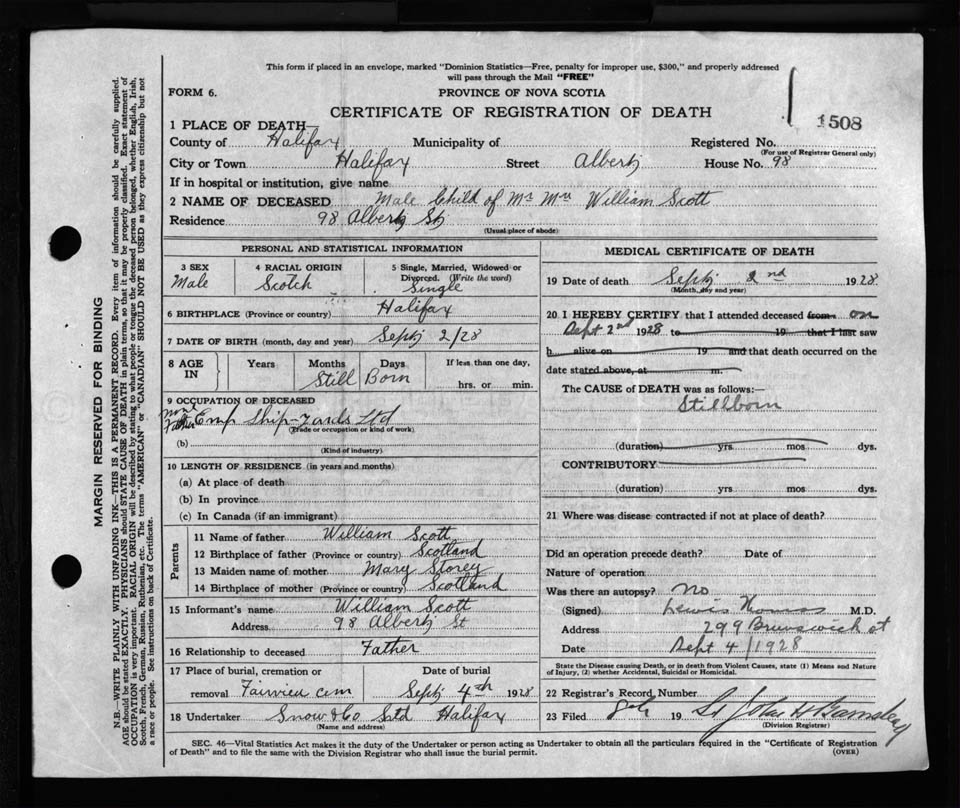 This form if placed in an envelope, marked "Dominion Statistics—Free, penalty for improper use, $300," and properly addressed
will pass through the Mail "FREE"
FORM 6.
PROVINCE OF NOVA SCOTIA
CERTIFICATE OF REGISTRATION OF DEATH
1508
1 PLACE OF DEATH—
County of Halifax Municipality of Registered No.
(For use of Registrar General only)
City or Town Halifax Street Albert House No. 98
If in hospital or institution, give name
2 NAME OF DECEASED Male Child of Mr Mrs William Scott
Residence 98 Albert St
(Usual place of abode)
PERSONAL AND STATISTICAL INFORMATION
3 SEX
Male
4 RACIAL ORIGIN
Scotch
5 Single, Married, Widowed or
Divorced. (Write the word)
Single
6 BIRTHPLACE (Province or country) Halifax
7 DATE OF BIRTH (month, day and year) Sept 2/28
8 AGE
IN
Years
Months
Days
If less than one day,
hrs. or min.
Still Born
9 OCCUPATION OF DECEASED
Father Emp Ship-Yards Ltd
(Trade or occupation or kind of work)
(b)
(Kind of industry)
10 LENGTH OF RESIDENCE (in years and months)
(a) At place of death
(b) In province
(c) In Canada (if an immigrant)
Parents
11 Name of father William Scott
12 Birthplace of father (Province or country) Scotland
13 Maiden name of mother Mary Storey
14 Birthplace of mother (Province or country) Scotland
15 Informant's name William Scott
Address 98 Albert St
16 Relationship to deceased Father
17 Place of burial, cremation or Date of burial
removal Fairview cem Sept 4th 1928
18 Undertaker Snow & Co Ltd Halifax
(Name and address)
MEDICAL CERTIFICATE OF DEATH
19 Date of death Sept 2nd 1928
(Month, day and year)
20 I HEREBY CERTIFY that I attended deceased from on
Sept 2nd 1928 to 19 that I last saw
h alive on 19 and that death occurred on the
date stated above, at m.
The CAUSE of DEATH was as follows:—
Stillborn
(duration) yrs. mos. dys.
CONTRIBUTORY
(duration) yrs. mos. dys.
21 Where was disease contracted if not at place of death?
Did an operation precede death? Date of
Nature of operation
Was there an autopsy? No
(Signed) Lewis Thomas M.D.
Address 299 Brunswick St
Date Sept 4/1928
State the Disease causing Death, or in death from Violent Causes, state (1) Means and Nature
of Injury, (2) whether Accidental, Suicidal or Homicidal.
22 Registrar's Record Number
23 Filed 19
(Division Registrar)
SEC. 46—Vital Statistics Act makes it the duty of the Undertaker or person acting as Undertaker to obtain all the particulars required in the "Certificate of Registration
of Death" and to file the same with the Division Registrar who shall issue the burial permit.
(OVER)
MARGIN RESERVED FOR BINDING
N.B.—WRITE PLAINLY WITH UNFADING INK—THIS IS A PERMANENT RECORD. Every item of information should be carefully supplied.
AGE should be stated EXACTLY. PHYSICIANS should STATE CAUSE OF DEATH in plain terms, so that it may be properly classified. Exact statement of
OCCUPATION is very important. RACIAL ORIGIN will be described by stating to what people or tongue the deceased person belonged, whether English, Irish,
Scotch, French, German, Russian, Ruthenian, etc. The terms "AMERICAN" or "CANADIAN" SHOULD NOT BE USED as they express citizenship but not
a race or people. See instructions on back of Certificate.